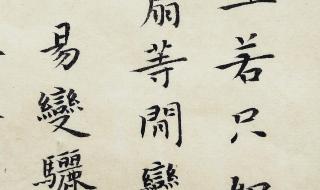 若只
扇等閒變
易變驪